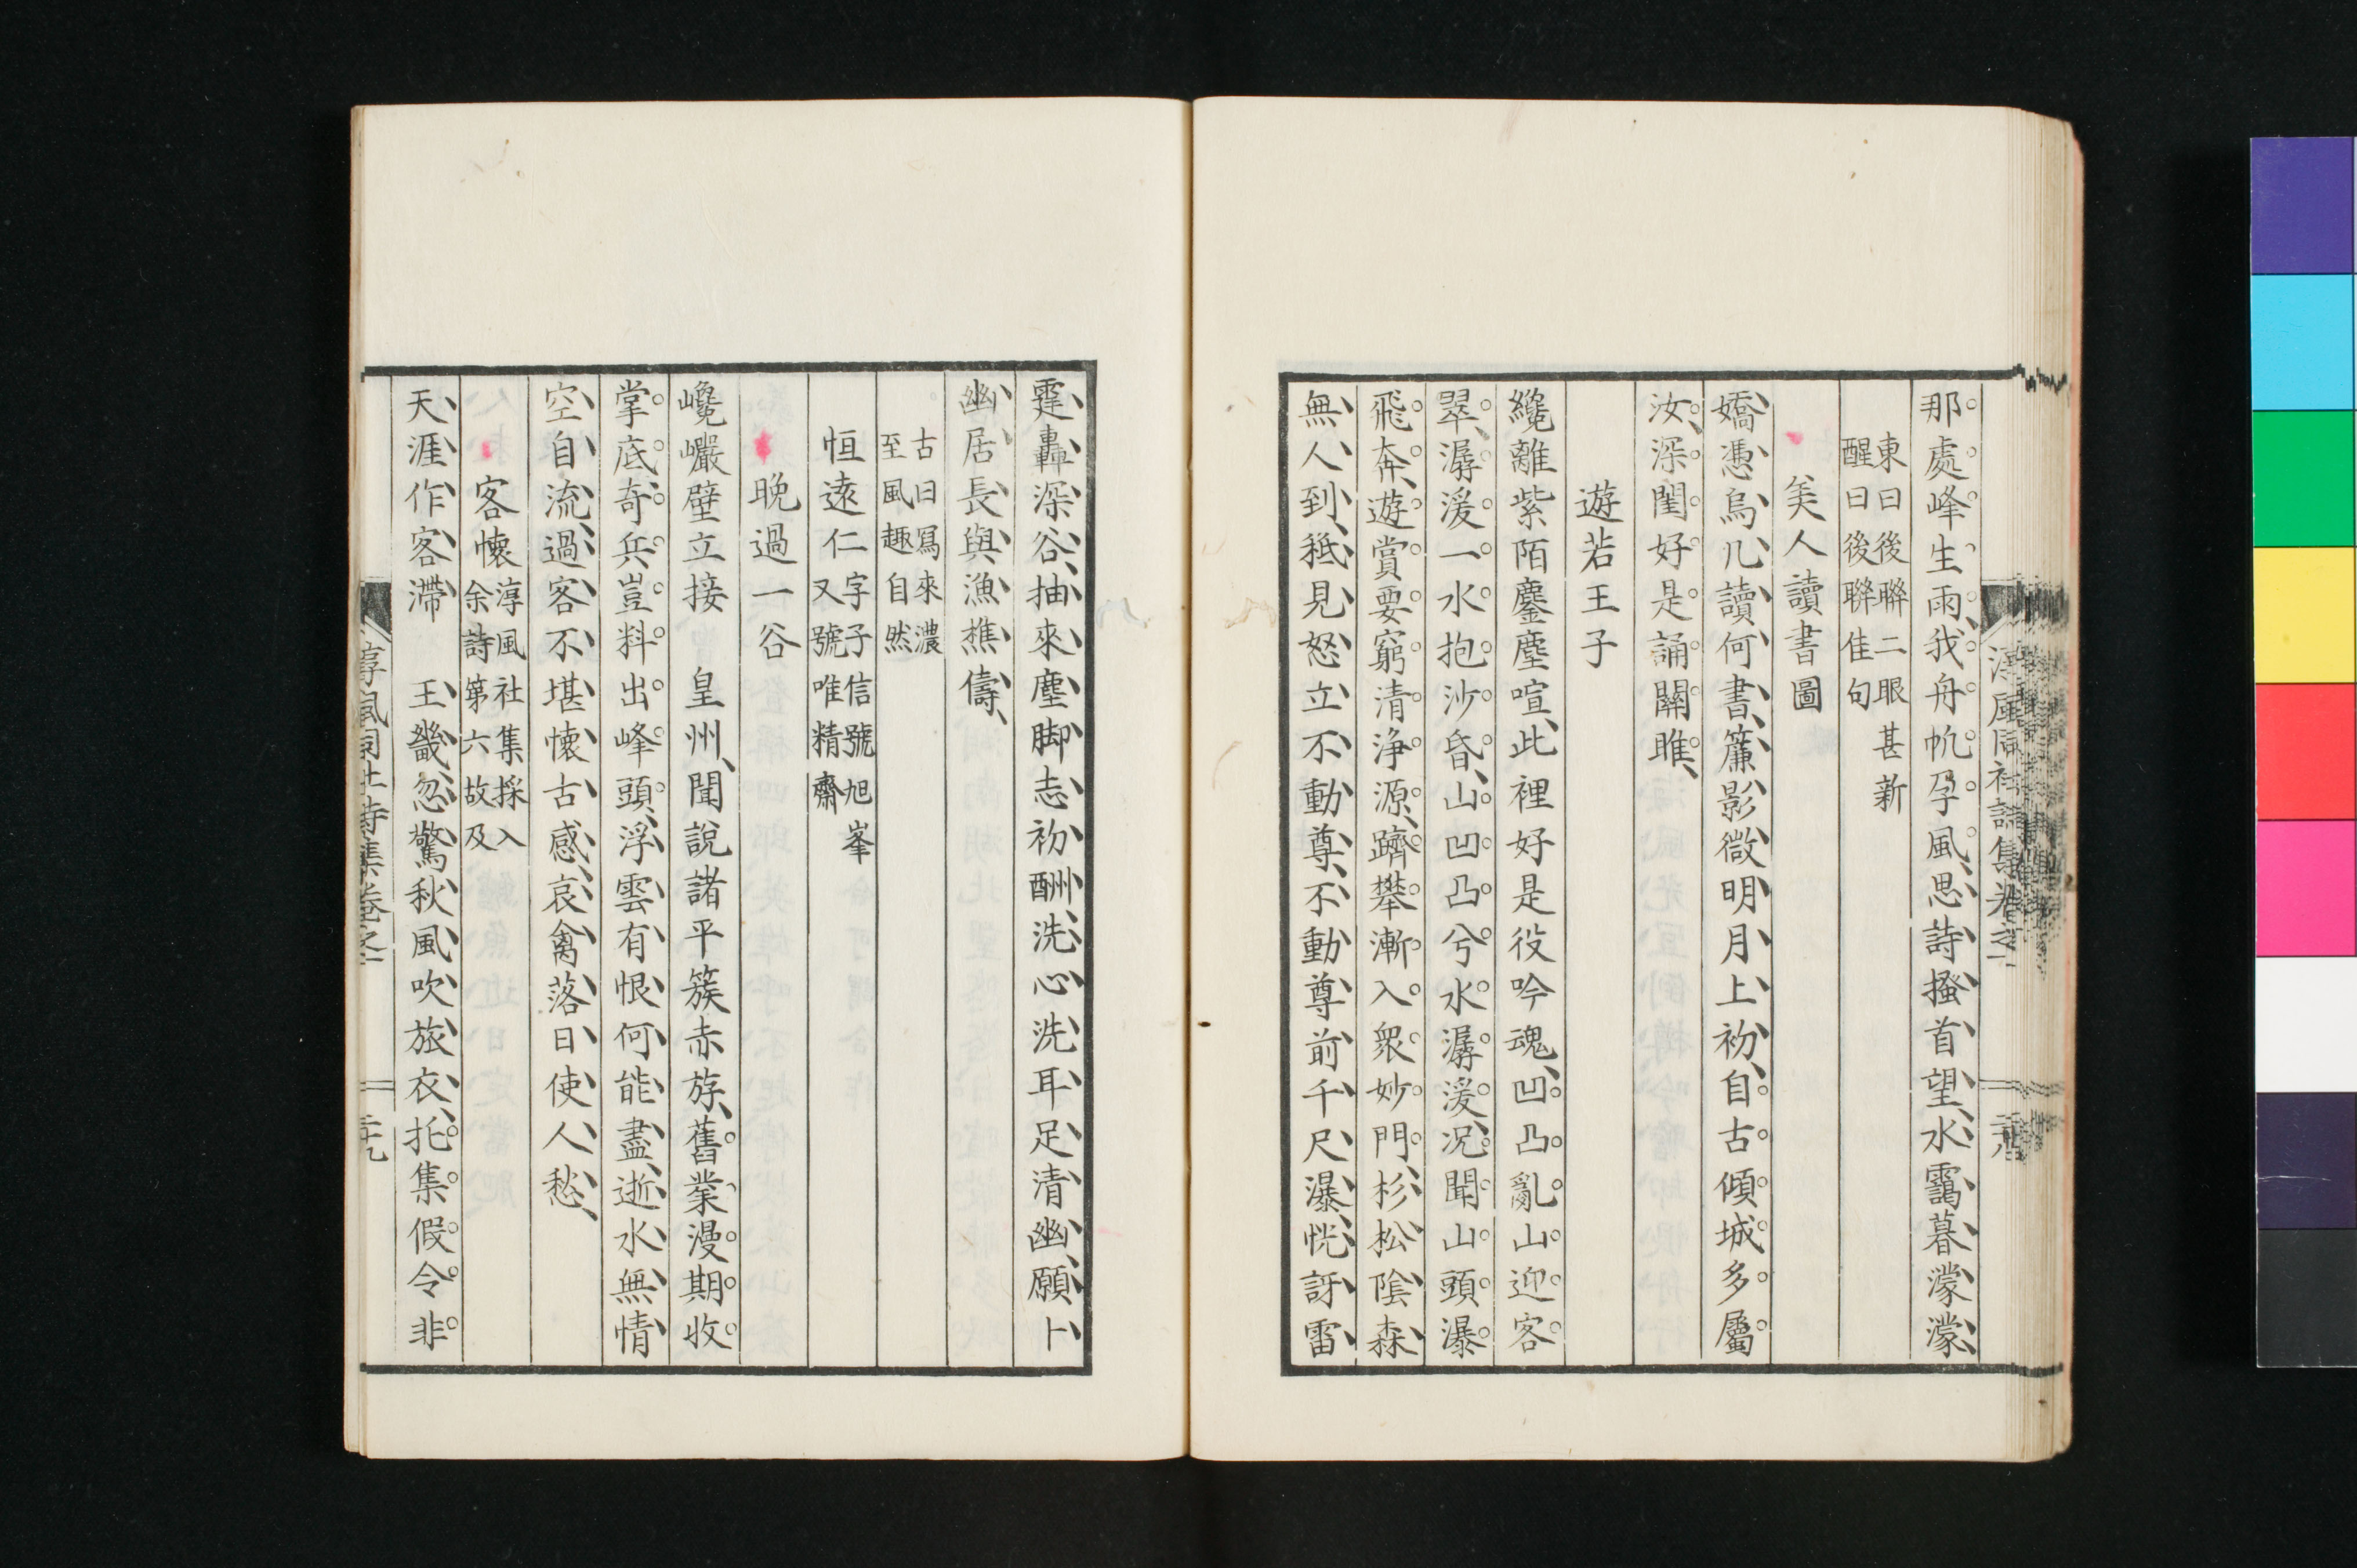 那處峰生雨我舟帆孕風思詩搔首望水靄暮濛濛
東曰後聯二眼甚新
醒曰後聯佳句
美人讀書圖
嬌憑烏几讀何書簾影微明月上初自古傾城多屬
汝深閨好是誦關雎
遊若王子
纔離紫陌鏖塵喧此裡好是役吟魂凹凸亂山迎客
翠潺湲一水抱沙昏山凹凸兮水潺湲況聞山頭瀑
飛奔遊賞要窮清淨源躋攀漸入衆妙門杉松陰森
無人到秪見怒立不動尊不動尊前千尺瀑恍訝雷
霆轟深谷抽來塵脚志初酬洗心洗耳足清幽願卜
幽居長與漁樵儔
古曰寫來濃
至風趣自然
恒遠仁字子信號旭峯
又號唯精齋
晚過一谷
巉巖壁立接 皇州聞說諸平簇赤族舊業漫期收
掌底奇兵豈料出峰頭浮雲有恨何能盡逝水無情
空自流過客不堪懷古感哀禽落日使人愁
客懷淳風社集採入
余詩第六故及
天涯作客滯 王畿忽驚秋風吹旅衣托集假令非
淳風同社詩集卷之二
二十九